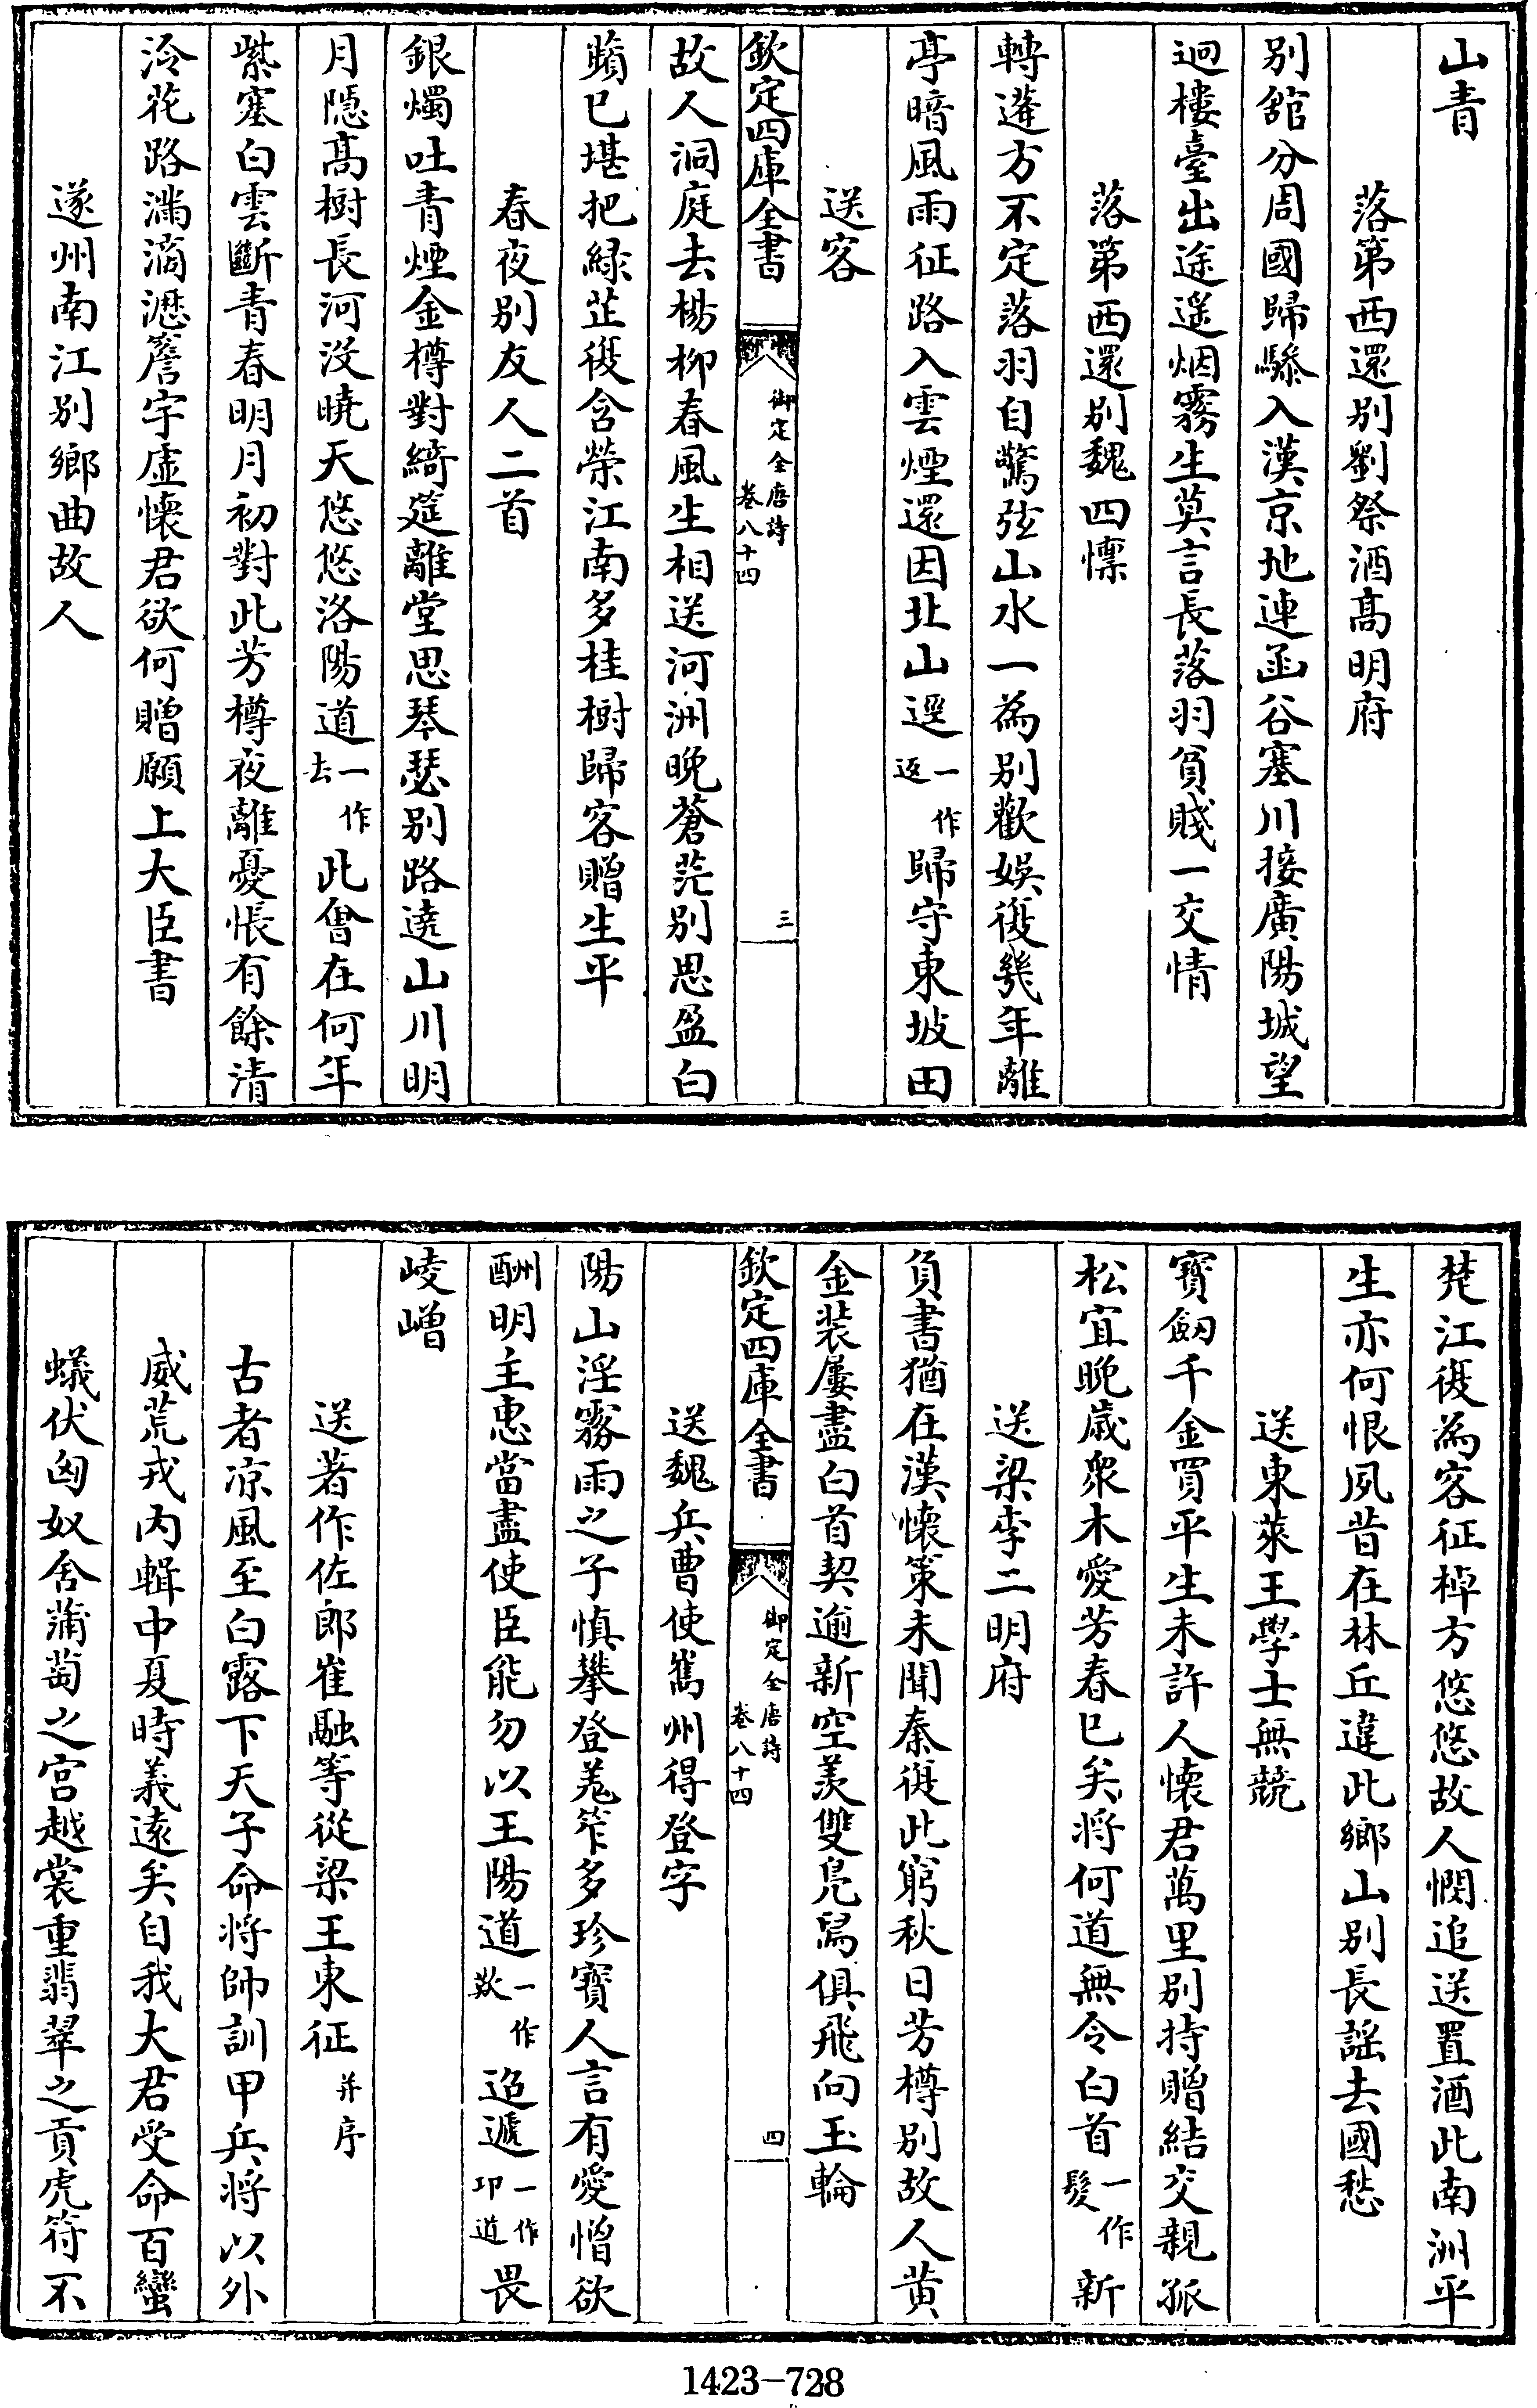 山青
落第西還别劉祭酒髙明府
别舘分周國歸驂入漢京地連函谷塞川接廣陽城望
迥樓臺出途遥烟霧生莫言長落羽貧賤一交情
落第西還别魏四懔
轉蓬方不定落羽自驚弦山水一為别歡娱復幾年離
亭暗風雨征路入雲煙還因北山逕一作返歸守東坡田
送客
故人洞庭去楊柳春風生相送河洲晚蒼茫别思盈白
蘋已堪把緑芷復含榮江南多桂樹歸客贈生平
春夜别友人二首
銀燭吐青煙金樽對綺筵離堂思琴瑟别路遶山川明
月隠髙樹長河沒曉天悠悠洛陽道一作去此㑹在何年
紫塞白雲斷青春明月初對此芳樽夜離憂悵有餘清
泠花路滿滴瀝簷宇虚懷君欲何贈願上大臣書
遂州南江别鄉曲故人
欽定四庫全書
御定全唐詩
卷八十四
三
楚江復為客征棹方悠悠故人憫追送置酒此南洲平
生亦何恨夙昔在林丘違此鄉山别長謡去國愁
送東萊王學士無競
寳劒千金買平生未許人懷君萬里别持贈結交親孤
松宜晚歳衆木愛芳春已矣将何道無令白首一作髮新
送梁李二明府
負書猶在漢懷策未聞秦復此窮秋日芳樽别故人黄
金装屢盡白首契逾新空羡雙鳬舄俱飛向玉輪
送魏兵曹使嶲州得登字
陽山淫霧雨之子慎攀登羗笮多珍寳人言有愛憎欲
酬明主惠當盡使臣能勿以王陽道一作歎迢遞一作邛道畏
崚嶒
送著作佐郎崔融等從梁王東征并序
古者凉風至白露下天子命将帥訓甲兵将以外
威荒戎内輯中夏時義遠矣自我大君受命百蠻
蟻伏匈奴舍蒲萄之宫越裳重翡翠之貢虎符不
欽定四庫全書
御定全唐詩
卷八十四
四
1423-728